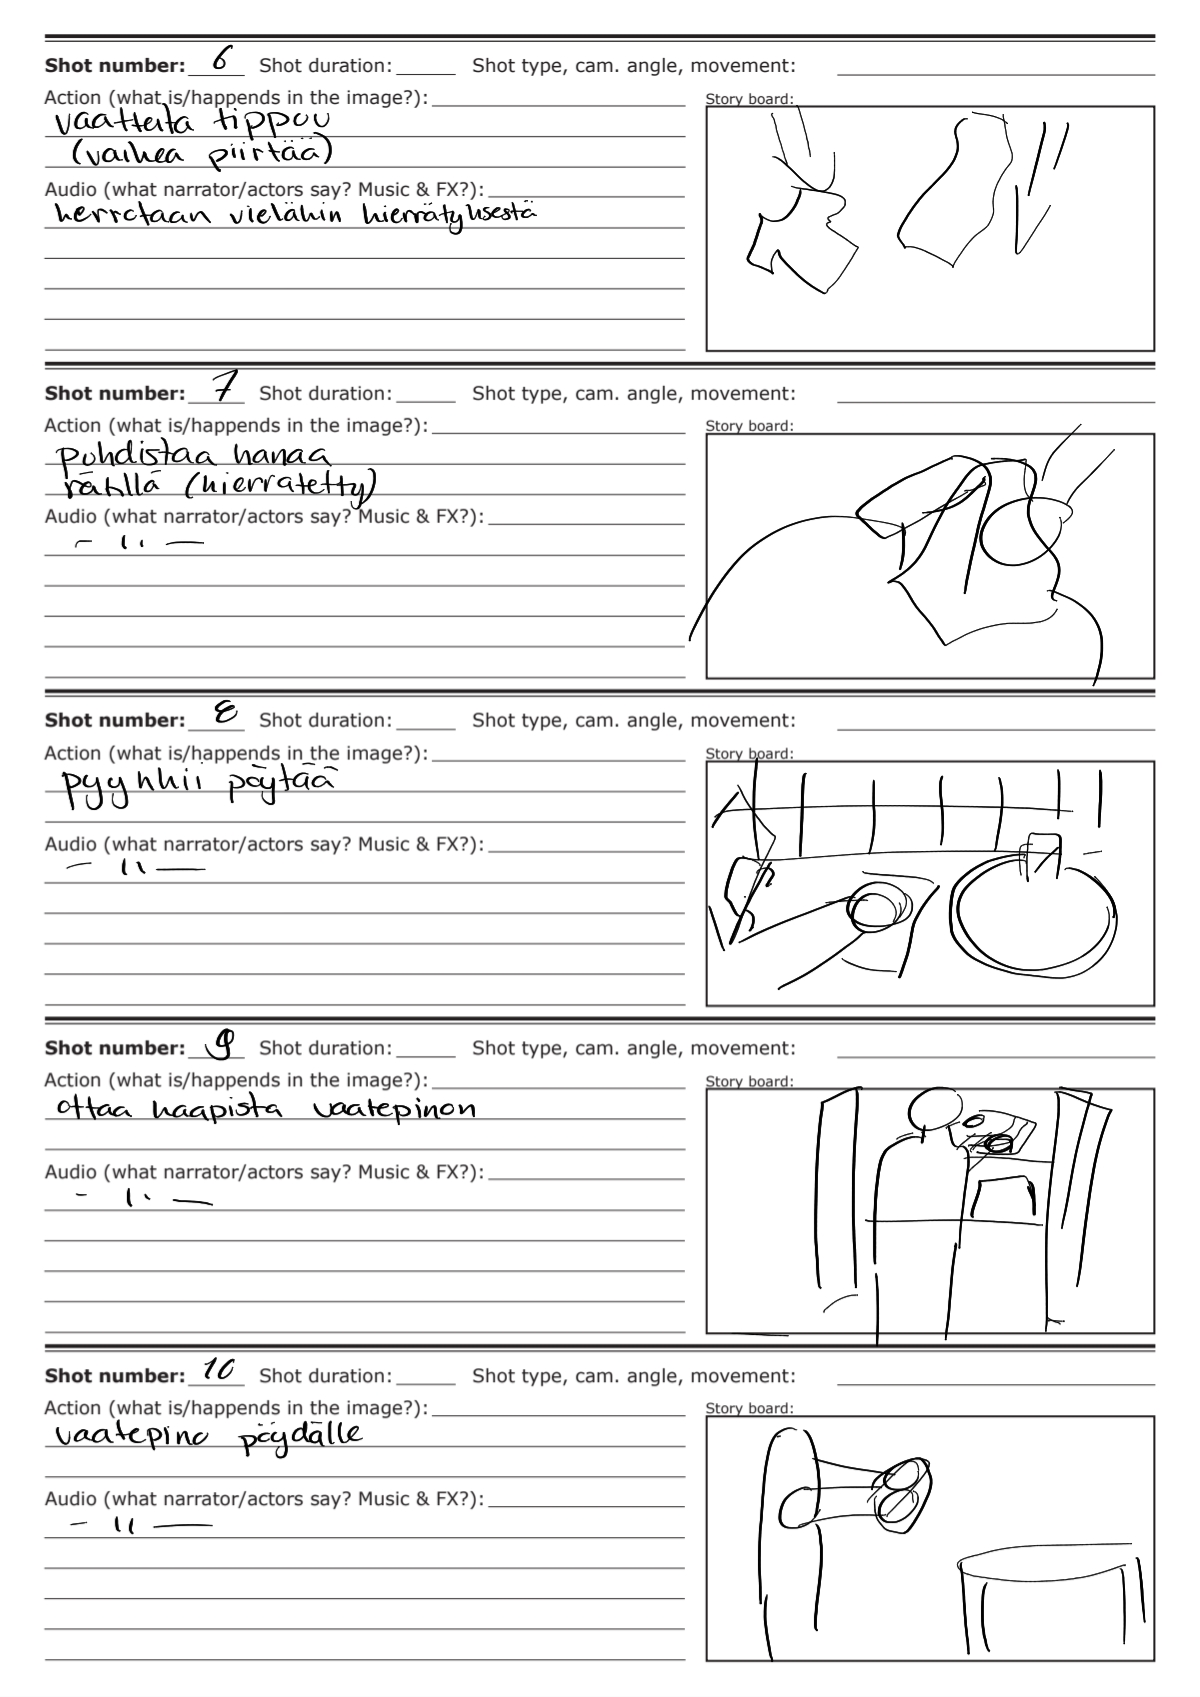 Shot number: 6 Shot duration: Shot type, cam. angle, movement:
Action (what is/happends in the image?): Story board:
vaatteita tippuu
(vaikea piirtää)
Audio (what narrator/actors say? Music & FX?):
kerrotaan vieläkin kierrätyksestä
Shot number: 7 Shot duration: Shot type, cam. angle, movement:
Action (what is/happends in the image?): Story board:
puhdistaa hanaa
rätillä (kierrätetty)
Audio (what narrator/actors say? Music & FX?):
- 11 -
Shot number: 8 Shot duration: Shot type, cam. angle, movement:
Action (what is/happends in the image?): Story board:
pyyhkii pöytää
Audio (what narrator/actors say? Music & FX?):
- 11 -
Shot number: 9 Shot duration: Shot type, cam. angle, movement:
Action (what is/happends in the image?): Story board:
ottaa kaapista vaatepinon
Audio (what narrator/actors say? Music & FX?):
- 11 -
Shot number: 10 Shot duration: Shot type, cam. angle, movement:
Action (what is/happends in the image?): Story board:
vaatepino pöydälle
Audio (what narrator/actors say? Music & FX?):
- 11 -